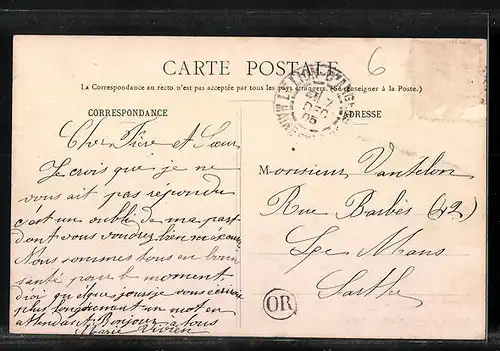 CARTE POSTALE
6
La Correspondance au recto n'est pas acceptée par tous les pays étrangers. (Se renseigner à la Poste.)
CORRESPONDANCE
ADRESSE
Cher Frère et Sœur
Je crois que je ne
vous ait pas répondu
c'est un oubli de ma part
dont vous voudrez bien
Nous sommes tous en bonne
santé pour le moment
vous
plus longuement un mot en
attendant Bonjour a tous
Marie Vivien
Monsieur Vantelon
Rue Barbès (42)
Le Mans
Sarthe
DEC
05
OR